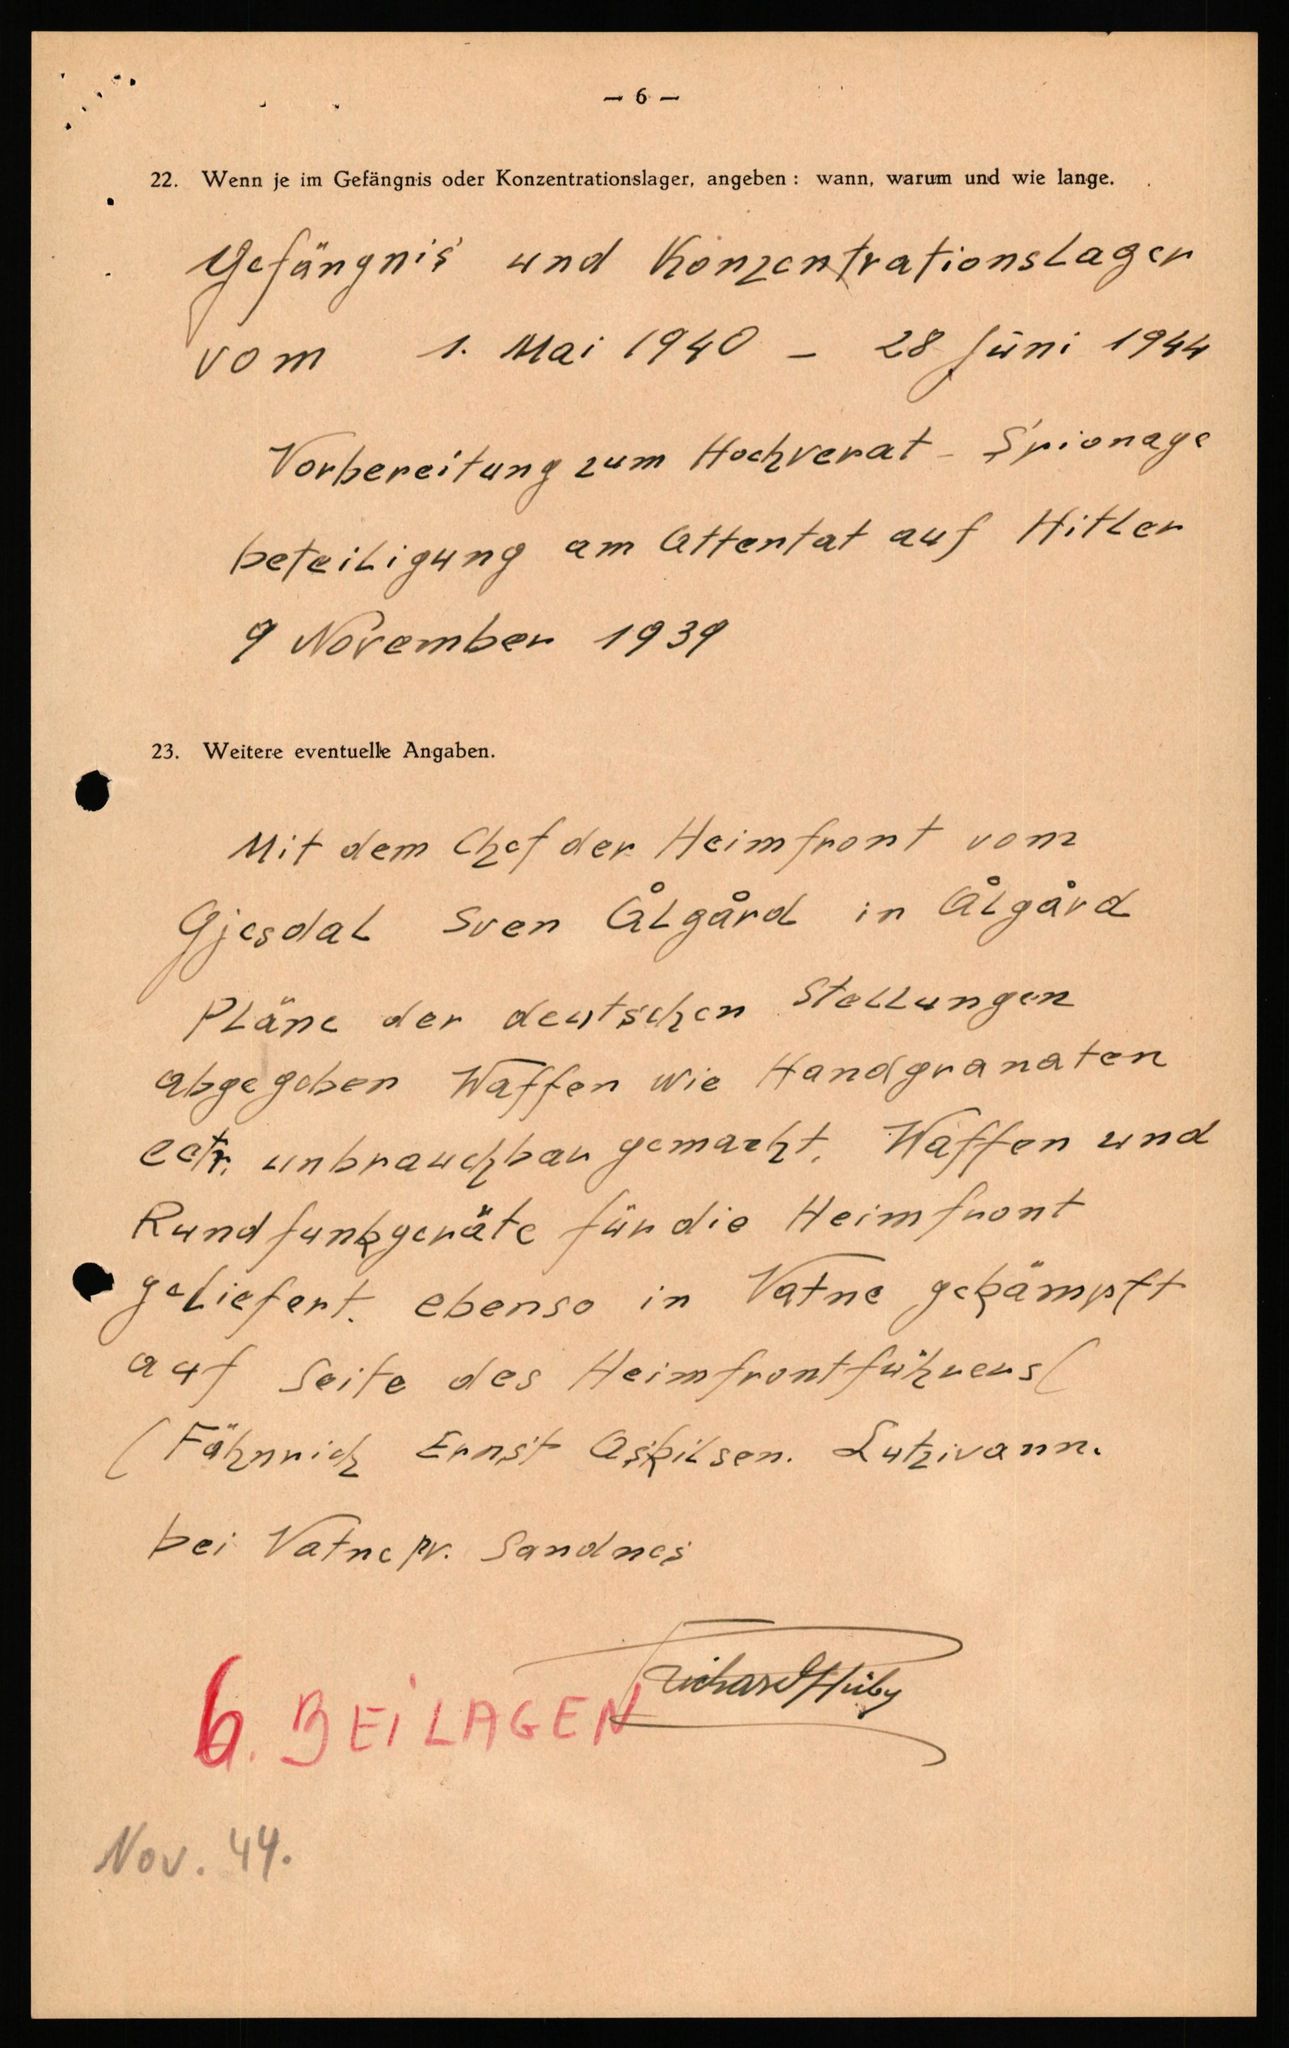 — 6 —
22. Wenn je im Gefängnis oder Konzentrationslager, angeben : wann, warum und wie lange.
Gefängnis und Konzentrationslager
vom 1. Mai 1940 - 28 Juni 1944
Vorbereitung zum Hochverat - Spionage
beteiligung am Attentat auf Hitler
9 November 1939
23. Weitere eventuelle Angaben.
Mit dem Chef der Heimfront vom
Gjesdal Sven Ålgård in Ålgård
Pläne der deutschen Stellungen
abgegeben Waffen wie Handgranaten
ectr. unbrauchbar gemacht. Waffen und
Rundfunkgeräte für die Heimfront
geliefert. ebenso in Vatne gekämpft
auf Seite des Heimfrontführers (
(Fähnrich Ernst Askilsen. Lutzivann.
bei Vatne pr. Sandnes
Richard Huby
6. BEILAGEN
Nov. 44.